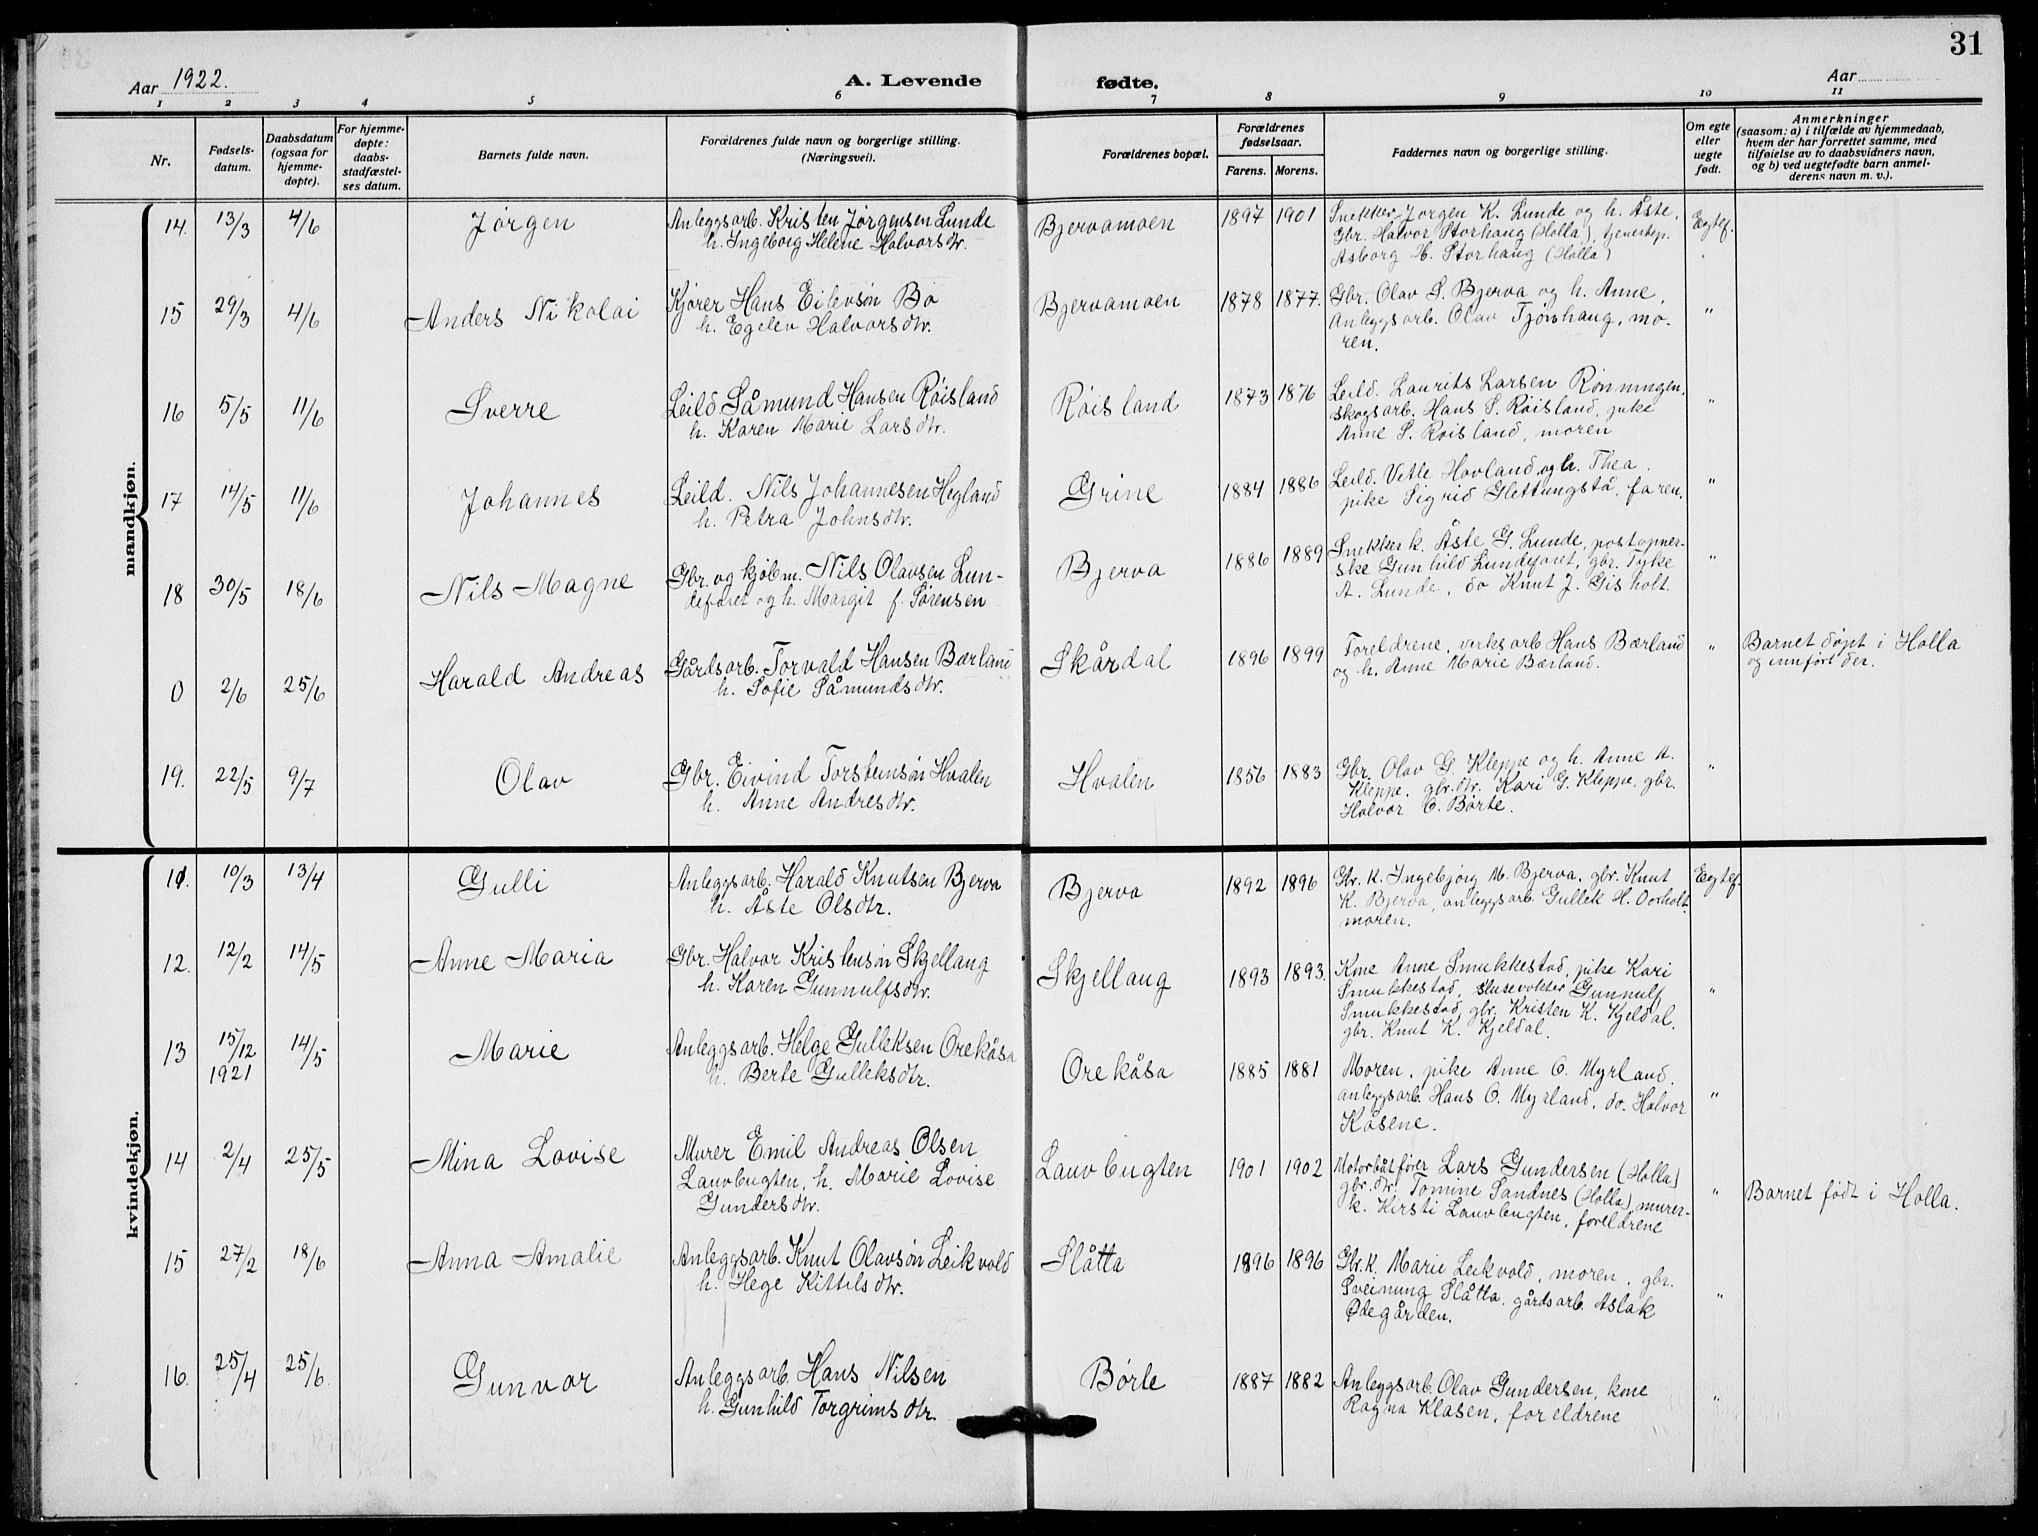 31
Aar 1922.
A. Levende fødte.
Aar
1 2 3 4 5 6 7 8 9 10 11
Nr.
Fødsels-
datum.
Daabsdatum
(ogsaa for
hjemme-
døpte).
For hjemme-
døpte:
daabs-
stadfæstel-
ses datum.
Barnets fulde navn.
Forældrenes fulde navn og borgerlige stilling.
(Næringsvei).
Forældrenes bopæl.
Forældrenes
fødselsaar.
Farens. Morens.
Faddernes navn og borgerlige stilling.
Om egte
eller
uegte
født.
Anmerkninger
(saasom: a) i tilfælde av hjemmedaab,
hvem der har forrettet samme, med
tilføielse av to daabsvidners navn,
og b) ved uegtefødte barn anmel-
derens navn m. v.).
mandkjøn.
14. 13/3 4/6 Jørgen
Anleggsarb. Kristen Jørgensen Lunde
h. Ingeborg Helene Halvorsdtr.
Bjervamoen 1897 1901
Snekker Jørgen K. Lunde og h. Åste,
Gbr. Halvor Storhaug (Holla), tjenestep.
Asborg H. Storhaug (Holla)
Egtef.
15 29/3 4/6 Anders Nikolai
Kjører Hans Eilevsøn Bø
h. Egelev Halvorsdtr.
Bjervamoen 1878 1877.
Gbr. Olav S. Bjerva og h. Anne,
Anleggsarb. Olav Tjønhaug, mo-
ren.
"
16 5/5 11/6 Sverre
Leild Såmund Hansen Røisland
h. Karen Marie Larsdtr.
Røisland 1873 1876
Leild. Laurits Larsen Rønningen,
skogsarb. Hans S. Røisland, pike
Anne S. Røisland, moren
"
17 14/5 11/6 Johannes
Leild. Nils Johannesen Hegland
h. Petra Johnsdtr.
Grine 1884 1886
Leild. Vetle Hovland og h. Thea.
pike Sigrid Glettungstå, faren.
"
18 30/5 18/6 Nils Magne
Gbr. og kjøbm. Nils Olavsen Lun-
defaret og h. Margit f. Sørensen
Bjerva 1886 1889
Snekker k. Åste G. Lunde, postopner-
ske Gunhild Lundefaret, gbr. Tyke
A. Lunde, do Knut J. Gisholt.
"
0 2/6 25/6 Harald Andreas
Gårdsarb. Torvald Hansen Bærland
h. Sofie Såmundsdtr.
Skårdal 1896 1899
Foreldrene, verksarb Hans Bærland
og h. Anne Marie Bærland.
"
Barnet døpt i Holla
og innført der.
19. 22/5 9/7 Olav
Gbr. Eivind Torsteinsøn Hvalen
h. Anne Andresdtr.
Hvalen 1856 1883
Gbr. Olav G. Kleppe og h. Anne A.
Kleppe, gbr.dtr. Kari G. Kleppe, gbr.
Halvor O. Børte.
"
kvindekjøn.
11. 10/3 13/4 Gulli
Anleggsarb. Harald Knutsen Bjerva
h. Åste Olsdtr.
Bjerva 1892 1896
Gbr. k. Ingebjørg M. Bjerva, gbr. Knut
K. Bjerva, anleggsarb Gullek H. Oorholt,
moren.
Egtef.
12. 12/2 14/5 Anne Maria
Gbr. Halvor Kristensøn Skjellaug
h. Karen Gunnulfsdtr.
Skjellaug 1893 1893.
Kone Anne Smukkestad, pike Kari
Smukkestad, slusevokter Gunnulf
Smukkestad, gbr. Kristen K. Kjeldal.
gbr. Knut K. Kjeldal.
"
13 15/12 1921 14/5 Marie
Anleggsarb. Helge Gulleksen Orekåsa
h. Berte Gulleksdtr.
Orekåsa 1885 1881
Moren, pike Anne O. Myrland.
anleggsarb. Hans O. Myrland, do. Halvor
Kåsene.
"
14 2/4 25/5 Mina Lovise
Murer Emil Andreas Olsen
Lauvbugten, h. Marie Lovise
Gundersdtr.
Lauvbugten 1901 1902
Motorbåtfører Lars Gundersen (Holla)
gbr.dtr. Tomine Sandnes (Holla), murer-
k. Kirsti Lauvbugten, foreldrene
"
Barnet født i Holla.
15 27/2 18/6 Anna Amalie
Anleggsarb. Knut Olavsøn Leikvold
h. Hege Kittilsdtr.
Slåtta 1896 1896
Gbr.k. Marie Leikvold, moren, gbr.
Sveinung Slåtta, gårdsarb. Aslak
Ødegården.
"
16. 25/4 25/6 Gunvor
Anleggsarb. Hans Nilsen
h. Gunhild Torgrimsdtr.
Børte 1887 1882
Anleggsarb. Olav Gundersen, kone
Ragna Klasen, foreldrene
"